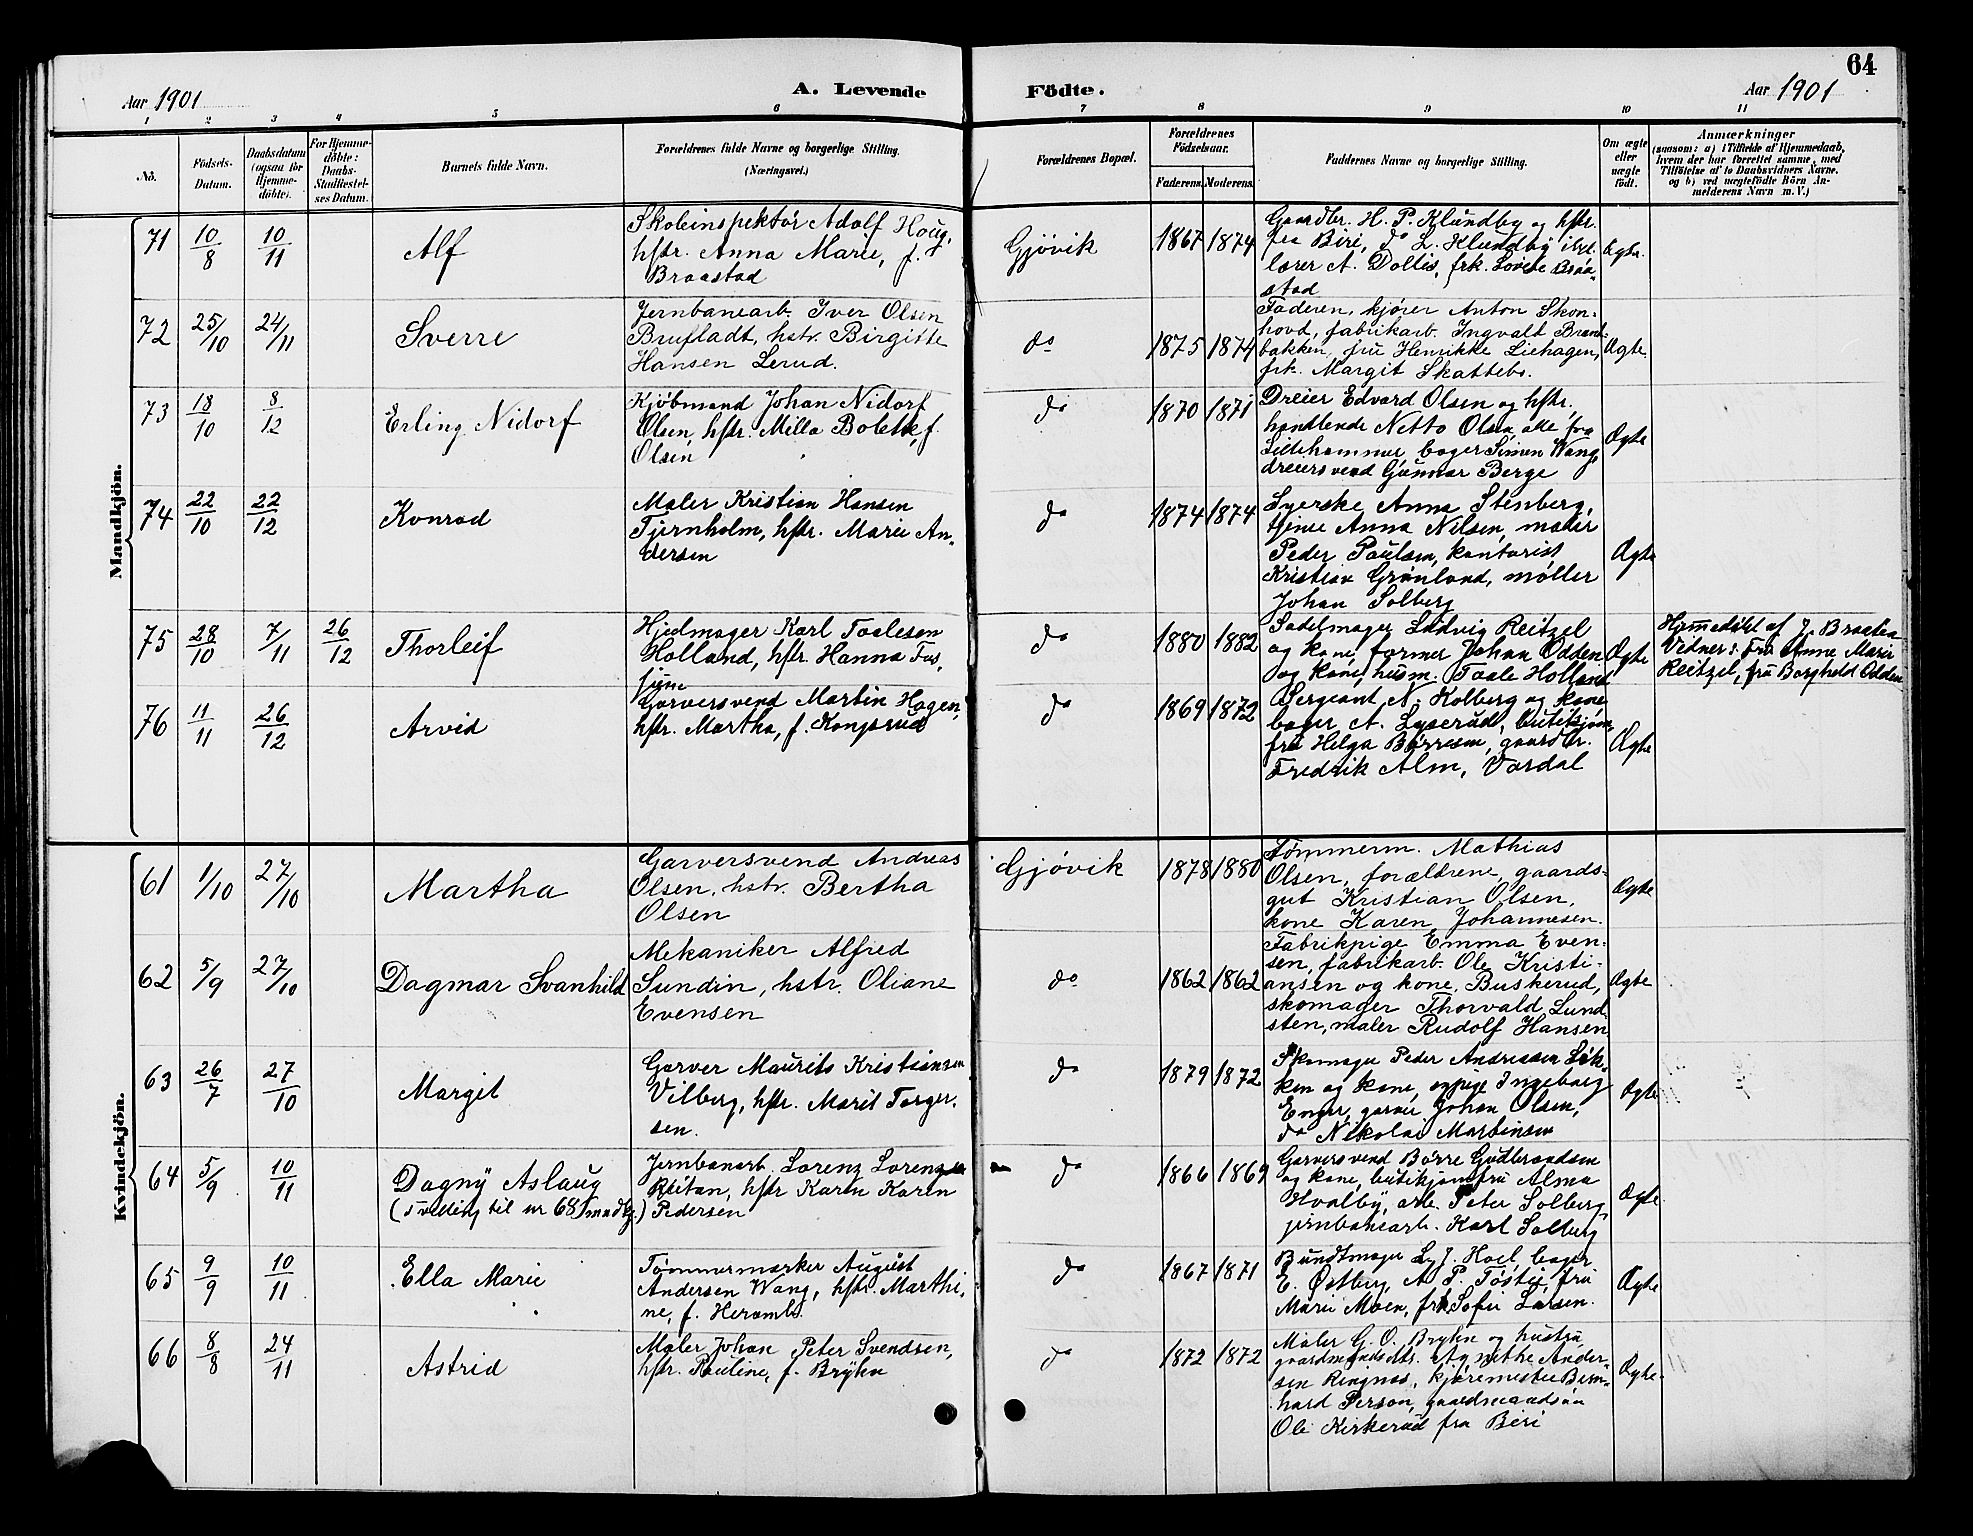 64
Aar 1901
A. Levende Födte.
Aar 1901
1 2 3 4 5 6 7 8 9 10 11
No.
Födsels-Datum.
Daabsdatum (ogsaa for Hjemme-döbte).
For Hjemme-döbte: Daabs-Stadfæstel-ses Datum.
Barnets fulde Navn.
Forældrenes fulde Navne og borgerlige Stilling.
(Næringsvei.)
Forældrenes Bopæl.
Forældrenes Födselsaar.
Faderens. Moderens.
Faddernes Navne og borgerlige Stilling.
Om ægte eller uægte födt.
Anmærkninger
(saasom: a) i Tilfælde af Hjemmedaab,
hvem der har forrettet samme, med
Tilföielse af to Daabsvidners Navne,
og b) ved uægtefödte Börn An-
melderens Navn m. V.)
Mandkjön.
71 10/8 10/11 Alf
Skoleinspektør Adolf Houg,
hstr. Anna Marie, f.
Braastad
Gjøvik 1867 1874
Gaardbr. H. P. Klundby og hstr.
fra Biri, do L. Klundby
lærer A. Dollis, frk. Lovise Braa-
stad
Ægte.
72 25/10 24/11 Sverre
Jernbanearb. Iver Olsen
Brufladt, hstr. Birgitte
Hansen Lerud.
do 1875 1874
Faderen, kjører Anton Skon-
hovd, fabrikarb. Ingvald Brænd-
bakken, fru Henrikke Liehagen,
frk. Margit Skattebo.
Ægte.
73 18/10 8/12 Erling Nidorf
Kjöbmand Johan Nidorf
Olsen, hstr. Milla Bolette, f.
Olsen
do 1870 1871
Dreier Edvard Olsen og hstr.
handlende Netto Olsen, alle fra
Lillehammer, bager Simen Wang,
dreiersvend Gunnar Berge
Ægte
74 22/10 22/12 Konrad
Maler Kristian Hansen
Tjernholm, hstr. Marie An-
dersen
do 1874 1874
Syerske Anna Stenberg,
tjene Anna Nilsen, maler
Peder Paulsen, kontorist
Kristian Grønland, møller
Johan Solberg
Ægte
75 28/10 7/11 26/12 Thorleif
Hjulmager Karl Taalesen
Holland, hstr. Hanna Fos-
jum
do 1880 1882
Sadelmager Ludvig Reitzel
og kone, former Johan Odden
og kone, husm. Taale Holland
Ægte
Hjemmedøbt af J. Braaten
Vidner: Fru Anne Marie
Reitzel, fru Borghild Odden
76 11/11 26/12 Arvid
Garversvend Martin Hagen,
hstr. Martha, f. Kongsrud
do 1869 1872
Sergeant N. Kolberg og kone
bager A. Lyserud, butiksjom-
fru Helga Børresen, gaardbr.
Fredrik Alm, Vardal
Ægte
Kvindekjön.
61 1/10 27/10 Martha
Garversvend Andreas
Olsen, hstr. Bertha
Olsen
Gjøvik 1878 1880
Tømmerm. Mathias
Olsen, forældrene, gaards-
gut Kristian Olsen,
kone Karen Johannesen.
Ægte
62 5/9 27/10 Dagmar Svanhild
Mekaniker Alfred
Sundin, hstr. Oliane
Evensen
do 1862 1862
Fabrikpige Emma Even-
sen, fabrikarb. Ole Kristi-
ansen og kone, Buskerud,
skomager Thorvald Lund-
sten, maler Rudolf Hansen
Ægte
63 26/7 27/10 Margit
Garver Maurits Kristiansen
Vilberg, hstr. Marit Torger-
sen.
do 1879 1872
Skomager Peder Andreassen Løk-
ken og kone, sypige Ingeborg
Enger, garver Johan Olsen,
do Nikolai Martinsen
Ægte
64 5/9 10/11 Dagny Aslaug
(tvilling til nr 68 mandkj.)
Jernbanarb. Lorenz Lorenzen
Reitan, hstr Karen Karen
Pedersen
do 1866 1869
Garversvend Børre Gudbrandsen
og kone, butikjomfru Alma
Hvalby, arb. Peter Solberg,
jernbanearb. Karl Solberg
Ægte
65 9/9 10/11 Ella Marie
Tømmermærker August
Andersen Wang, hstr. Marthi-
ne, f.
do 1867 1871
Bundtmager L. J. Hoel, bager
E. Østberg, A. P. Tøstie, fru
Marie Moen, frk. Sofie Larsen.
Ægte
66 8/8 24/11 Astrid
Maler Johan Peter Svendsen,
hstr. Pauline, f. Bryhn
do 1872 1872
Maler G. O. Bryhn og hustru,
gaardmandsdtr. Agnethe Ander-
sen Ringnæs, kjøremester Bern-
hard Person, gaardmandsøn
Ole Kirkerud fra Biri
Ægte.